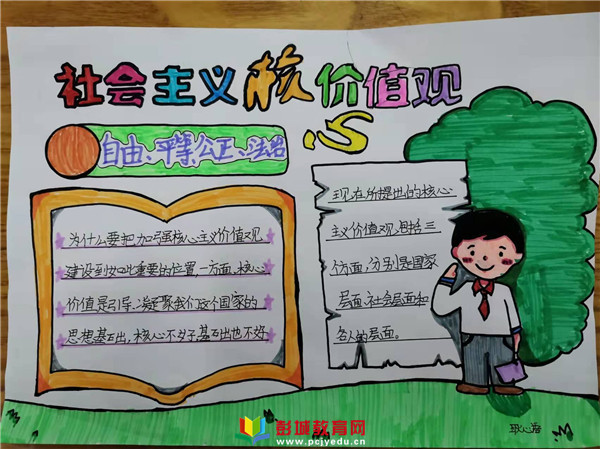 社会主义核心价值观
自由、平等、公正、法治
为什么要把加强核心主义价值观
建设到如此重要的位置,一方面,核心
价值是引导、凝聚我们这个国家的
思想基石出,核心不好基石出也不好
现在所提出的核心
主义价值观,包括三
方面,分别是国家
层面、社会层面和
各人的层面。
彭城教育网
www.pcjyedu.cn